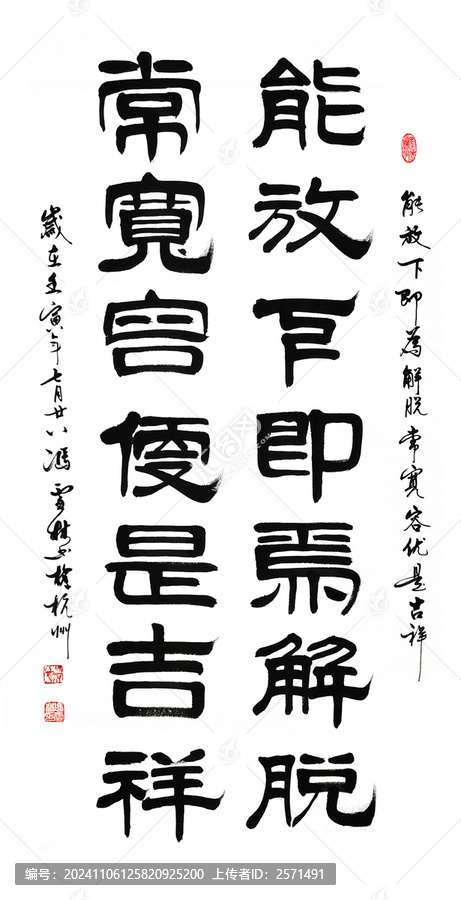 能放下即為解脱常寬容便是吉祥
能放下即為解脱
常寬容便是吉祥
歲在壬寅年七月廿八馮雪林书於杭州
编号：20241106125820925200 上传者ID：2571491